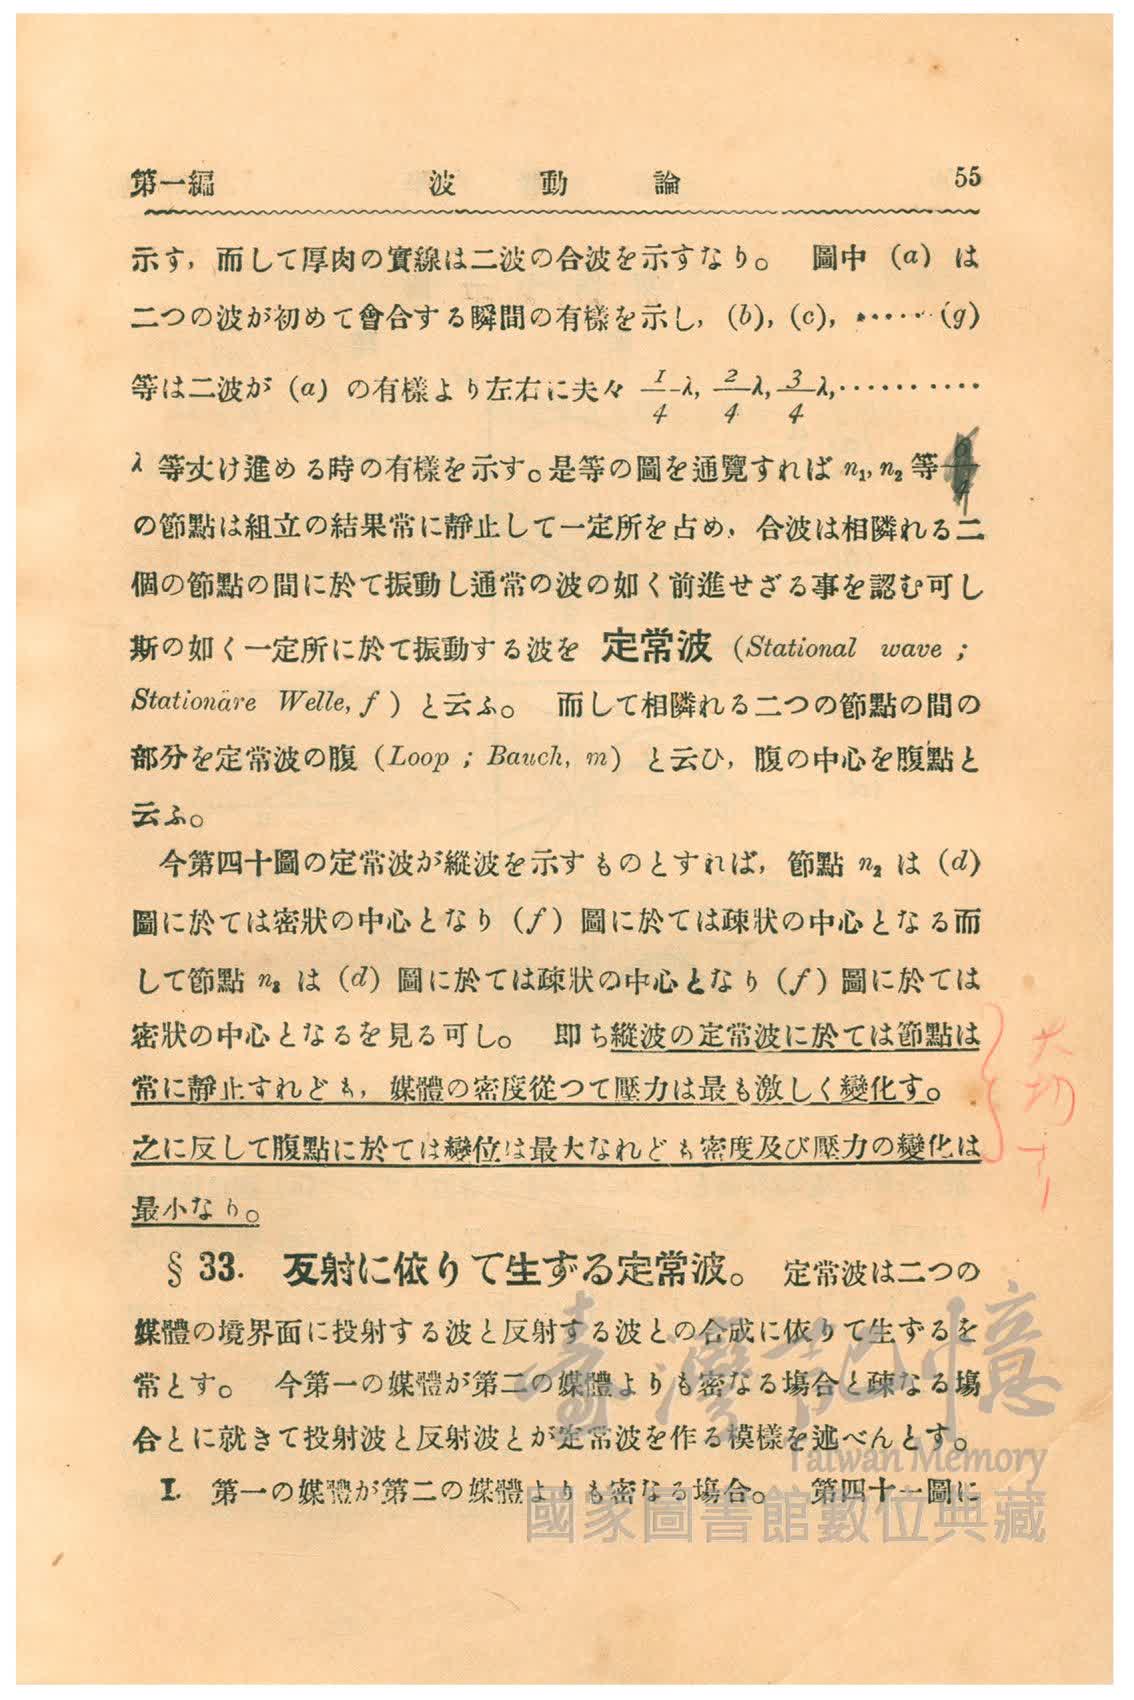 第一編 波動論 55
示す，而して厚肉の實線は二波の合波を示すなり。 圖中 (a) は
二つの波が初めて會合する瞬間の有樣を示し，(b), (c), ······ (g)
等は二波が (a) の有樣より左右に夫々 1/4 λ, 2/4 λ, 3/4 λ, ··········
λ 等丈け進める時の有樣を示す。是等の圖を通覽すれば n₁, n₂ 等
の節點は組立の結果常に靜止して一定所を占め，合波は相隣れる二
個の節點の間に於て振動し通常の波の如く前進せざる事を認む可し
斯の如く一定所に於て振動する波を 定常波 (Stational wave ;
Stationäre Welle, f ) と云ふ。 而して相隣れる二つの節點の間の
部分を定常波の腹 (Loop ; Bauch, m) と云ひ，腹の中心を腹點と
云ふ。
今第四十圖の定常波が縱波を示すものとすれば，節點 n₂ は (d)
圖に於ては密狀の中心となり (f) 圖に於ては疎狀の中心となる而
して節點 n₃ は (d) 圖に於ては疎狀の中心となり (f) 圖に於ては
密狀の中心となるを見る可し。 即ち縱波の定常波に於ては節點は
常に靜止すれども，媒體の密度從つて壓力は最も激しく變化す。
之に反して腹點に於ては變位は最大なれども密度及び壓力の變化は
最小なり。
大切ナリ
§ 33. 反射に依りて生ずる定常波。 定常波は二つの
媒體の境界面に投射する波と反射する波との合成に依りて生ずるを
常とす。 今第一の媒體が第二の媒體よりも密なる塲合と疎なる塲
合とに就きて投射波と反射波とが定常波を作る模樣を述べんとす。
I. 第一の媒體が第二の媒體よりも密なる塲合。 第四十一圖に
臺灣記憶
Taiwan Memory
國家圖書館數位典藏